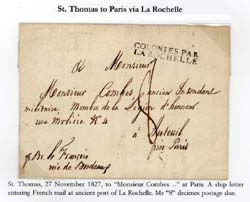 St. Thomas to Paris via La Rochelle
COLONIES PAR
LA ROCHELLE
A Monsieur
Monsieur Combes ancien Intendant
militaire, Membre de la Légion d'honneur
rue Molière No. 4
A Auteuil
près Paris
8
Br. le Français
via de Bordeaux
St. Thomas, 27 November 1827, to "Monsieur Combes ..." at Paris. A ship letter
entering French mail at ancient port of La Rochelle. Ms "8" decimes postage due.